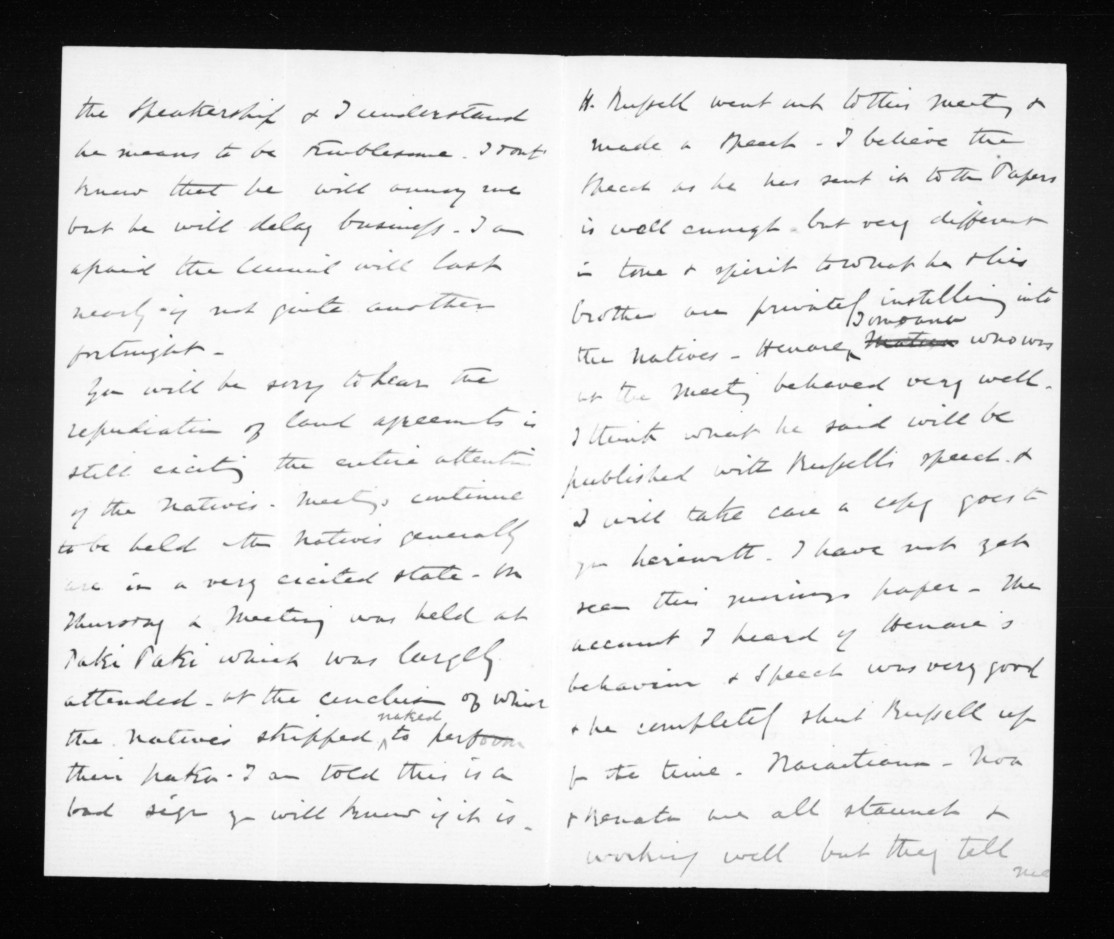 the Speakership & I understand
he means to be troublesome. I dont
know that he will annoy me
but he will delay business. I am
afraid the Council will last
nearly if not quite another
fortnight -
You will be sorry to hear the
repudiation of land agreements is
still exciting the entire attention
of the Natives. Meetings continue
to be held & the Natives generally
are in a very excited state. On
Thursday a Meeting was held at
Paki Paki which was largely
attended - at the conclusion of which
the Natives stripped naked to perform
their haka. I am told this is a
bad sign yu will know if it is.
H. Russell went out to this meeting &
made a speech - I believe the
speech as he has sent it to the Papers
is well enough but very different
in tone & spirit to what he & his
brother are privately instilling into
the Natives - Henare Tomoana who was
at the Meeting behaved very well.
I think what he said will be
published with Russell's speech &
I will take care a copy goes to
yu herewith. I have not yet
seen this mornings paper - The
account I heard of Henare's
behaviour & speech was very good
& he completely shut Russell up
for the time - Karaitiana - Noa
& Renata are all staunch &
working well but they tell
me